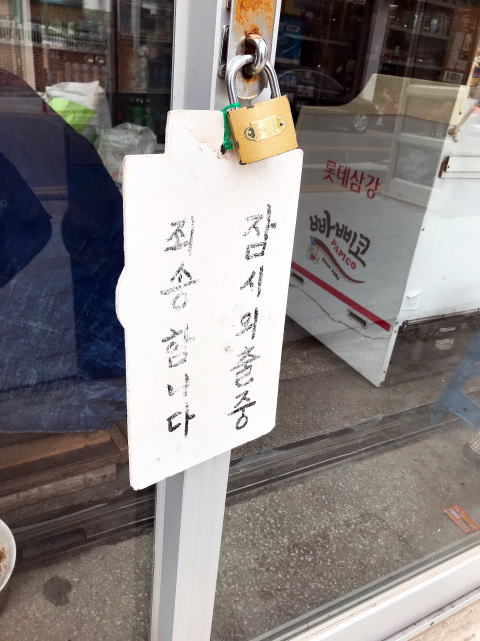 잠시외출중
죄송합니다
롯데삼강
빠삐코
PAPICO